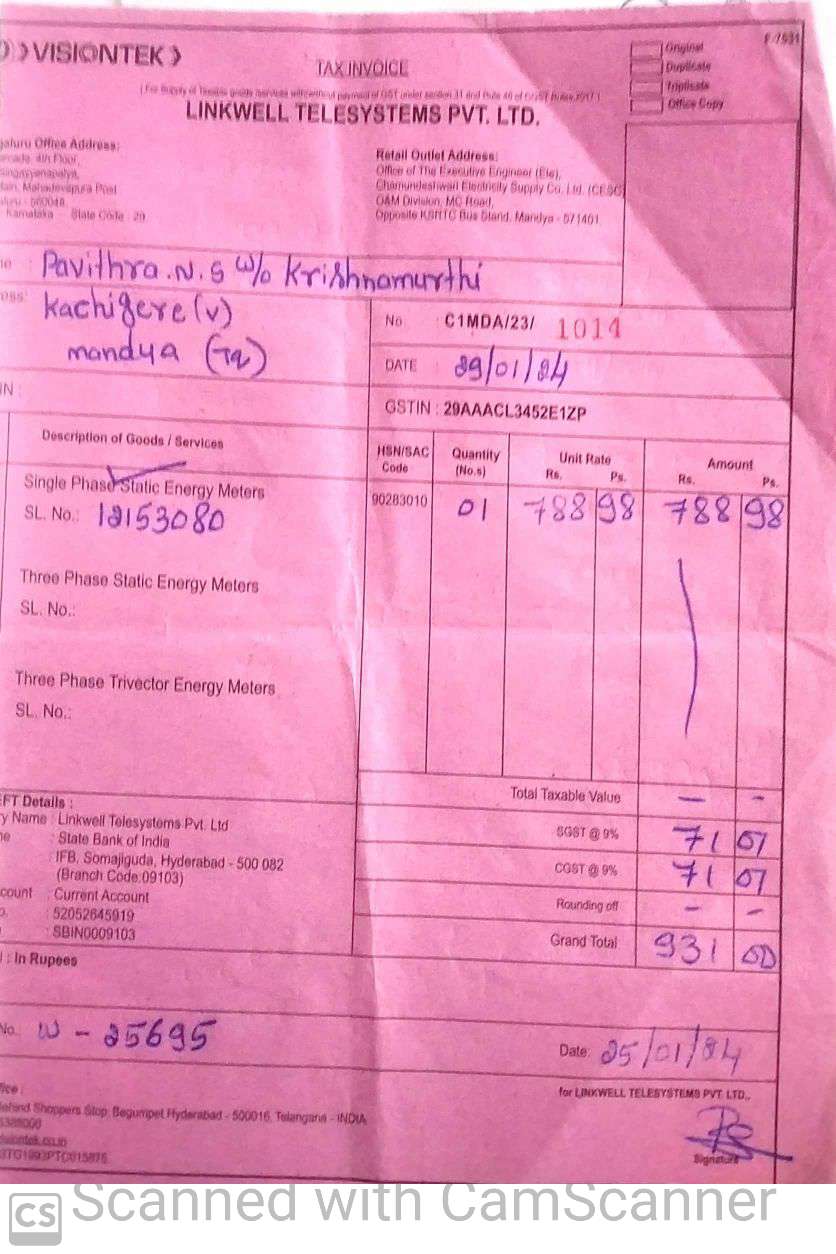 VISIONTEK
F-7531
TAX INVOICE
Original
Duplicate
Triplicate
Office Copy
LINKWELL TELESYSTEMS PVT. LTD.
Office Address:
4th Floor,
Mahadevapura Post
560048
Karnataka State Code : 29
Retail Outlet Address:
Office of The Executive Engineer (Ele),
Chamundeshwari Electricity Supply Co. Ltd. (CESC)
O&M Division, MC Road,
Opposite KSRTC Bus Stand, Mandya - 571401
Pavithra.N.S W/o Krishnamurthi
Kachigere (V)
mandya (Tq)
No : C1MDA/23/ 1014
DATE : 29/01/24
GSTIN : 29AAACL3452E1ZP
Description of Goods / Services
HSN/SAC Code
Quantity (No.s)
Unit Rate Rs. Ps.
Amount Rs. Ps.
Single Phase Static Energy Meters
90283010 01 788 98 788 98
SL. No.: 12153080
Three Phase Static Energy Meters
SL. No.:
Three Phase Trivector Energy Meters
SL. No.:
Total Taxable Value - -
SGST @ 9% 71 01
CGST @ 9% 71 01
Rounding off - -
Grand Total 931 00
Details :
Name : Linkwell Telesystems Pvt. Ltd
: State Bank of India
: IFB, Somajiguda, Hyderabad - 500 082
(Branch Code:09103)
: Current Account
: 52052645919
: SBIN0009103
: In Rupees
No. W - 25695
Date: 25/01/24
for LINKWELL TELESYSTEMS PVT. LTD.,
Shoppers Stop, Begumpet, Hyderabad - 500016, Telangana - INDIA
Signature
CS Scanned with CamScanner